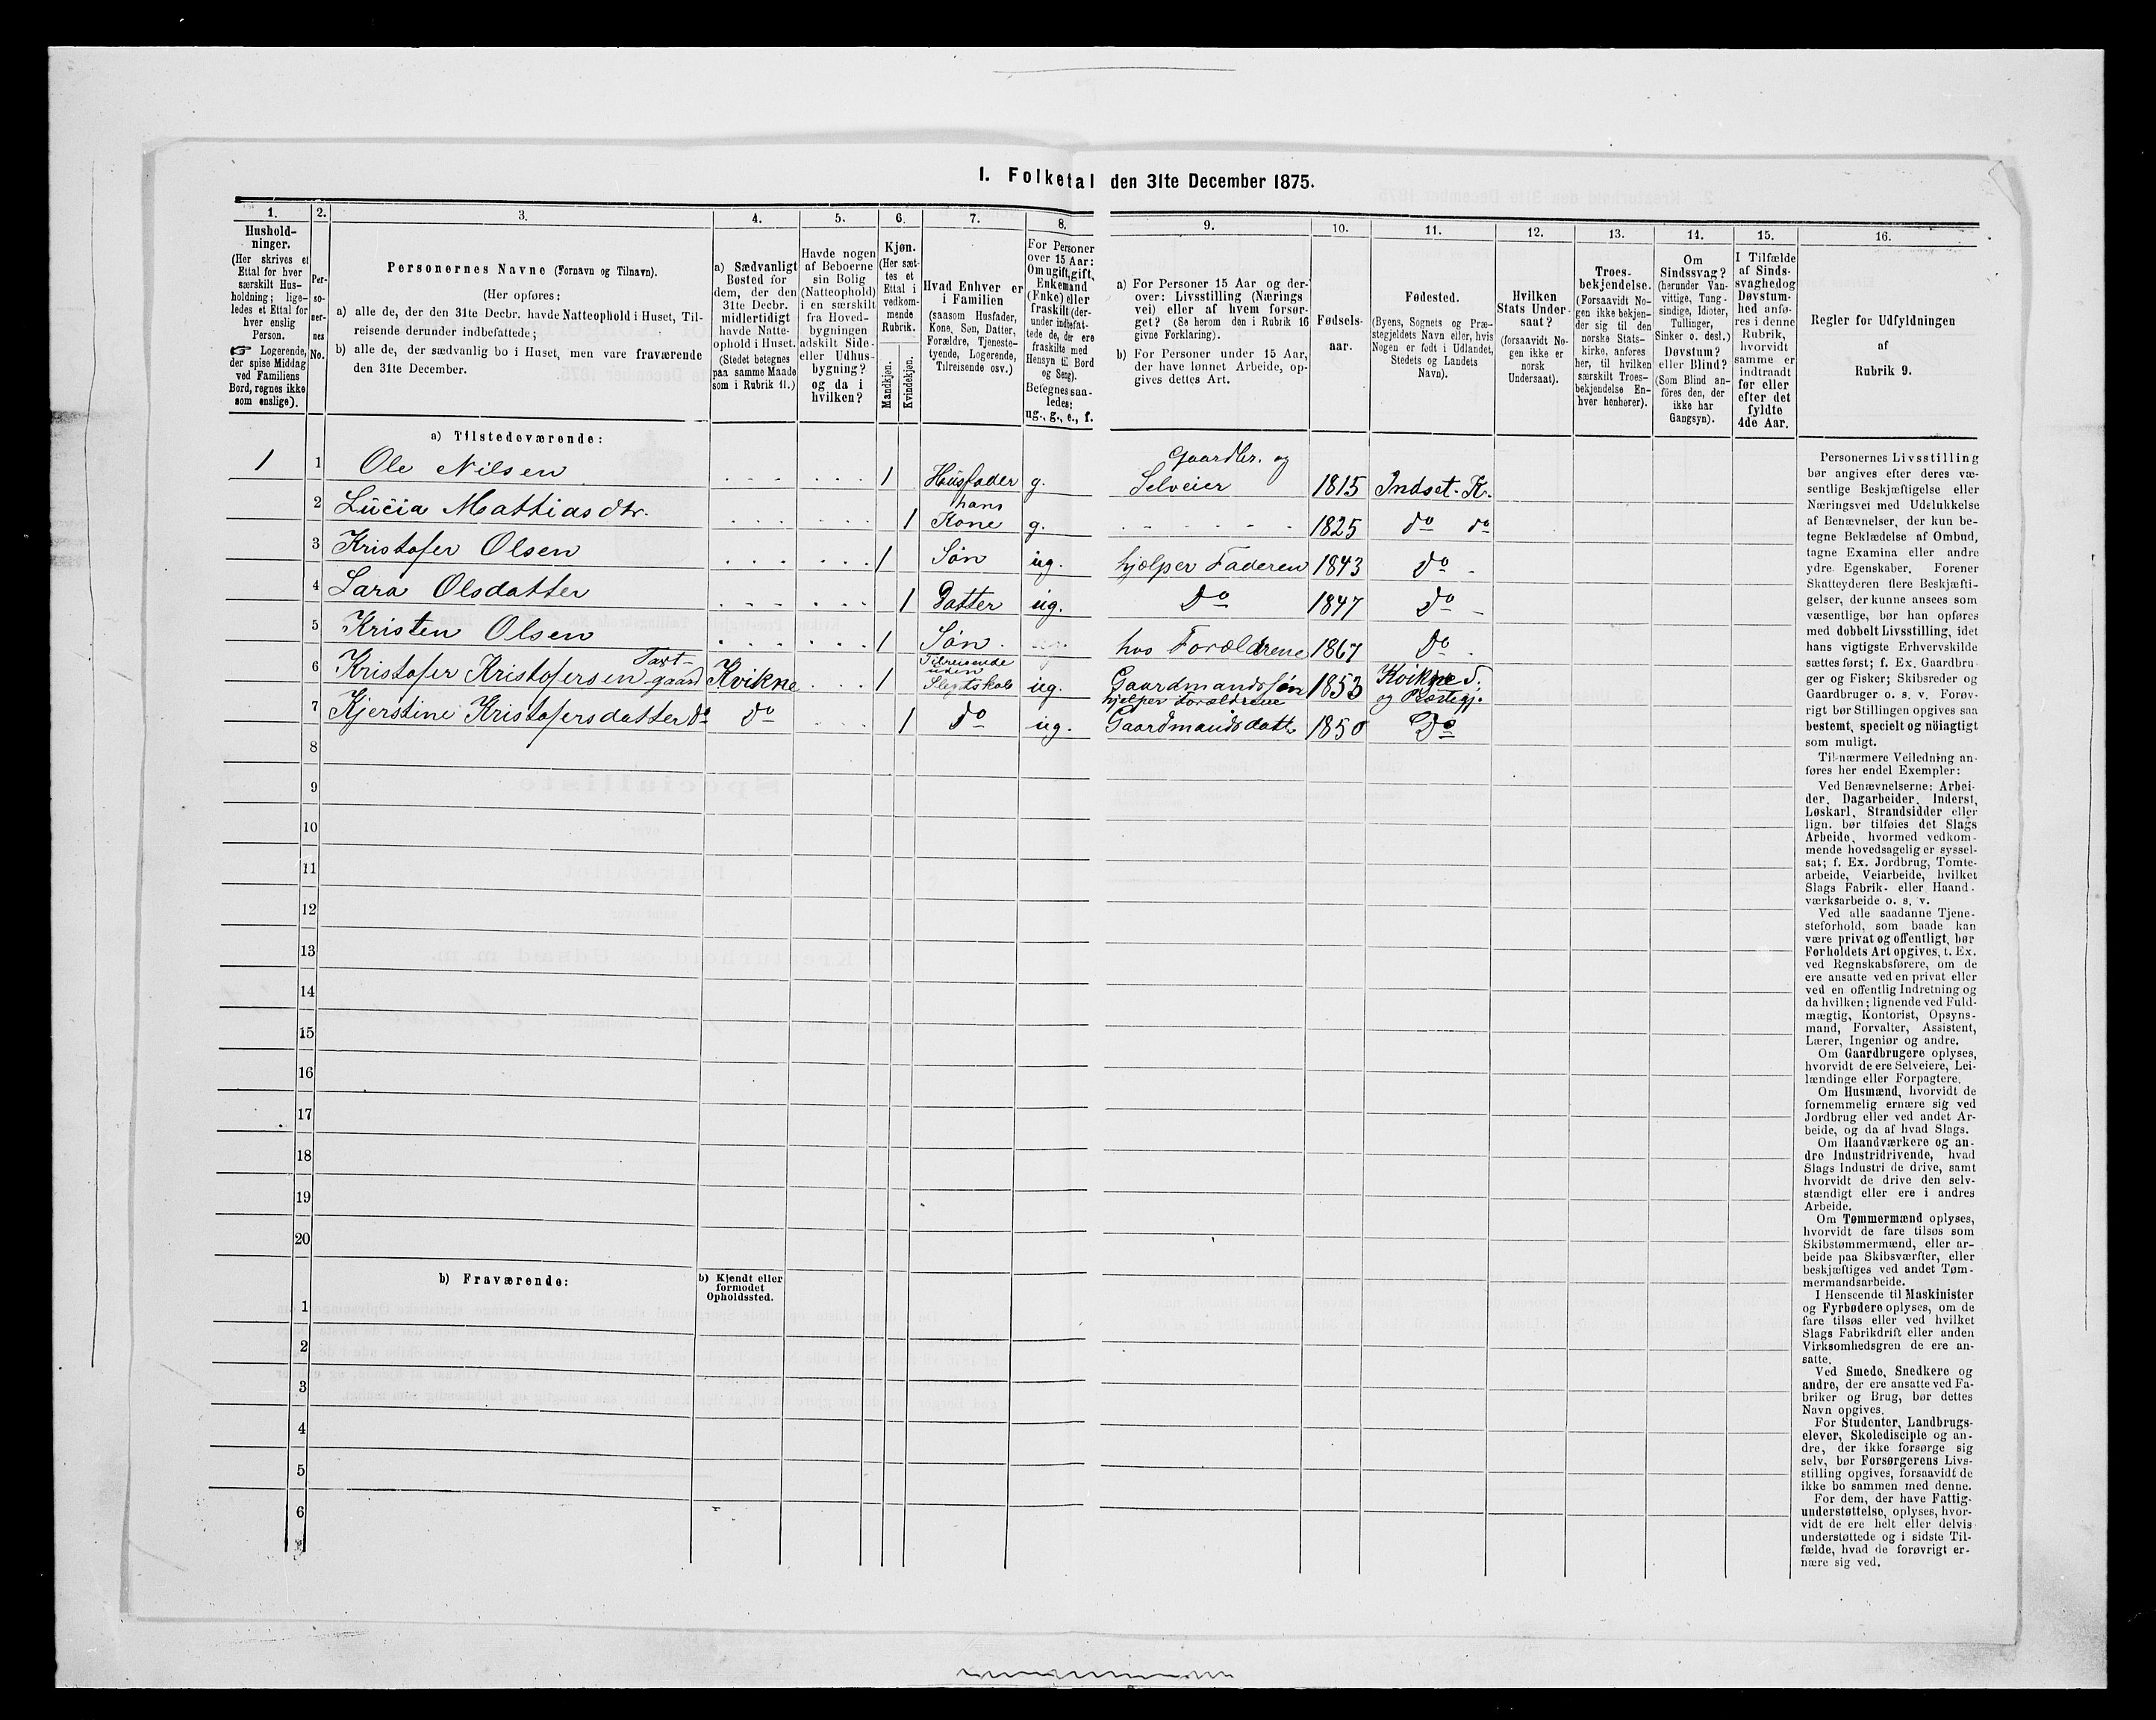 I. Folketal den 31te December 1875.
1. 2. 3. 4. 5. 6. 7. 8. 9. 10. 11. 12. 13. 14. 15. 16.
Hushold-
ninger.
(Her skrives et
Ettal for hver
særskilt Hus-
holdning; lige-
ledes et Ettal for
hver enslig
Person.
☞ Logerende,
der spise Middag
ved Familiens
Bord, regnes ikke
som enslige).
Per-
so-
ner-
nes
No.
Personernes Navne (Fornavn og Tilnavn).
(Her opføres:
a) alle de, der den 31te Decbr. havde Natteophold i Huset, Til-
reisende derunder indbefattede;
b) alle de, der sædvanlig bo i Huset, men vare fraværende
den 31te December.
a) Sædvanligt
Bosted for
dem, der den
31te Decbr.
midlertidigt
havde Natte-
ophold i Huset.
(Stedet betegnes
paa samme Maade
som i Rubrik 11.)
Havde nogen
af Beboerne
sin Bolig
(Natteophold)
i en særskilt
fra Hoved-
bygningen
adskilt Side-
eller Udhus-
bygning?
og da i
hvilken?
Kjøn.
(Her sæt-
tes et
Ettal i
vedkom-
mende
Rubrik.
Mandkjøn.
Kvindekjøn.
Hvad Enhver er
i Familien
(saasom Husfader,
Kone, Søn, Datter,
Forældre, Tjeneste-
tyende, Logerende,
Tilreisende osv.)
For Personer
over 15 Aar:
Om ugift, gift,
Enkemand
(Enke) eller
fraskilt (der-
under indbefat-
tede de, der ere
fraskilte med
Hensyn til Bord
og Seng).
Betegnes saa-
ledes:
ug., g., e., f.
a) For Personer 15 Aar og der-
over: Livsstilling (Nærings
vei) eller af hvem forsør-
get? (Se herom den i Rubrik 16
givne Forklaring).
b) For Personer under 15 Aar,
der have lønnet Arbeide, op-
gives dettes Art.
Fødsels-
aar.
Fødested.
(Byens, Sognets og Præ-
stegjeldets Navn eller, hvis
Nogen er født i Udlandet,
Stedets og Landets
Navn).
Hvilken
Stats Under-
saat?
(forsaavidt No-
gen ikke er
norsk
Undersaat).
Troes-
bekjendelse.
(Forsaavidt No-
gen ikke bekjen-
der sig til den
norske Stats-
kirke, anføres
her, til hvilken
særskilt Troes-
bekjendelse En-
hver henhører).
Om
Sindssvag?
(herunder Van-
vittige, Tung-
sindige, Idioter,
Tullinger,
Sinker o. desl.)
Døvstum?
eller Blind?
(Som Blind an-
føres den, der
ikke har
Gangsyn).
I Tilfælde
af Sinds-
svaghed og
Døvstum-
hed anfø-
res i denne
Rubrik,
hvorvidt
samme er
indtraadt
før eller
efter det
fyldte
4de Aar.
Regler for Udfyldningen
af
Rubrik 9.
a) Tilstedeværende:
1 1 Ole Nilsen 1 Husfader g. Gaardbr. og Selveier 1815 Indset. K.
2 Lucia Mathiasdtr. 1 hans Kone g. 1825 do do
3 Kristofer Olsen 1 Søn ug. hjelper Faderen 1843 do
4 Sara Olsdatter 1 Datter ug. Do 1847 Do
5 Kristen Olsen 1 Søn. hos Forældrene 1867 Do
6 Kristofer Kristofersen gaard Kvikne 1 Tilreisende uden ug. Gaardmandssøn hjelper Forældrene 1853 Kvikne S. og Præstegj.
7 Kjerstine Kristofersdatter do do 1 do ug. Gaardmandsdatt. 1850 Do
8
9
10
11
12
13
14
15
16
17
18
19
20
b) Fraværende:
b) Kjendt eller
formodet
Opholdssted.
1
2
3
4
5
6
Personernes Livsstilling
bør angives efter deres væ-
sentlige Beskjæftigelse eller
Næringsvei med Udelukkelse
af Benævnelser, der kun be-
tegne Beklædelse af Ombud,
tagne Examina eller andre
ydre Egenskaber. Forener
Skatteyderen flere Beskjæfti-
gelser, der kunne ansees som
væsentlige, bør han opføres
med dobbelt Livsstilling, idet
hans vigtigste Erhvervskilde
sættes først; f. Ex. Gaardbru-
ger og Fisker; Skibsreder og
Gaardbruger o. s. v. Forøv-
rigt bør Stillingen opgives saa
bestemt, specielt og nöiagtigt
som muligt.
Til nærmere Veiledning an-
føres her endel Exempler:
Ved Benævnelserne: Arbei-
der, Dagarbeider, Inderst,
Løskarl, Strandsidder eller
lign. bør tilføies det Slags
Arbeide, hvormed vedkom-
mende hovedsagelig er syssel-
sat; f. Ex. Jordbrug, Tomte-
arbeide, Veiarbeide, hvilket
Slags Fabrik- eller Haand-
værksarbeide o. s. v.
Ved alle saadanne Tjene-
steforhold, som baade kan
være privat og offentligt, bør
Forholdets Art opgives, t. Ex.
ved Regnskabsførere, om de
ere ansatte ved en privat eller
ved en offentlig Indretning og
da hvilken; lignende ved Fuld-
mægtig, Kontorist, Opsyns-
mand, Forvalter, Assistent,
Lærer, Ingeniør og andre.
Om Gaardbrugere oplyses,
hvorvidt de ere Selveiere, Lei-
lændinge eller Forpagtere.
Om Husmænd, hvorvidt de
fornemmelig ernære sig ved
Jordbrug eller ved andet Ar-
beide, og da af hvad Slags.
Om Haandværkere og an-
dre Industridrivende, hvad
Slags Industri de drive, samt
hvorvidt de drive den selv-
stændigt eller ere i andres
Arbeide.
Om Tømmermænd oplyses,
hvorvidt de fare tilsøs som
Skibstømmermænd, eller ar-
beide paa Skibsværfter, eller
beskjæftiges ved andet Tøm-
mermandsarbeide.
I Henseende til Maskinister
og Fyrbødere oplyses, om de
fare tilsøs eller ved hvilket
Slags Fabrikdrift eller anden
Virksomhedsgren de ere an-
satte.
Ved Smede, Snedkere og
andre, der ere ansatte ved Fa-
briker og Brug, bør dettes
Navn opgives.
For Studenter, Landbrugs-
elever, Skoledisciple og an-
dre, der ikke forsørge sig
selv, bør Forsørgerens Livs-
stilling opgives, forsaavidt de
ikke bo sammen med denne.
For dem, der have Fattig-
understøttelse, oplyses, hvor-
vidt de ere helt eller delvis
understøttede og i sidste Til-
fælde, hvad de forøvrigt er-
nære sig ved.